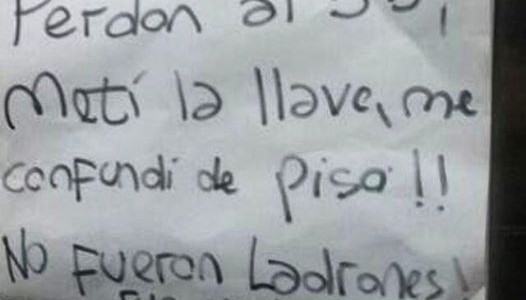 Perdon al
Metí la llave, me
confundí de piso!!
No fueron Ladrones!